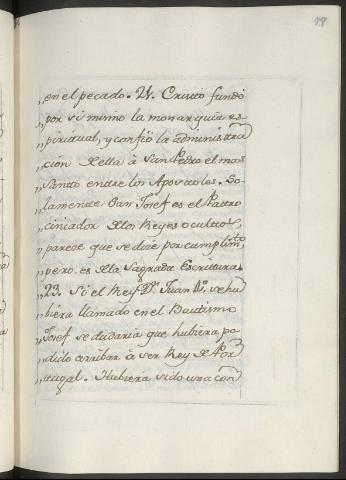 78
„ en el pecado. 21. Cristo fundó
„ por si mismo la monarquia es
„ piritual, y confió la administra
„ cion della à San Pedro el mas
„ entre los Apostoles. So
„ lamente San Josef es el Patro
„ cinador de los Reyes ocultos,
„ parece que se dize por cumplimto
„ pero es de la Sagrada Escritura.
„ 23. Si el Rey Dn. Juan 4o. se hu
„ biera llamado en el Bautismo
„ Josef se dudaria que hubiera po
„ dido arribar à ser Rey de Por
„ tugal. Hubiera sido una con